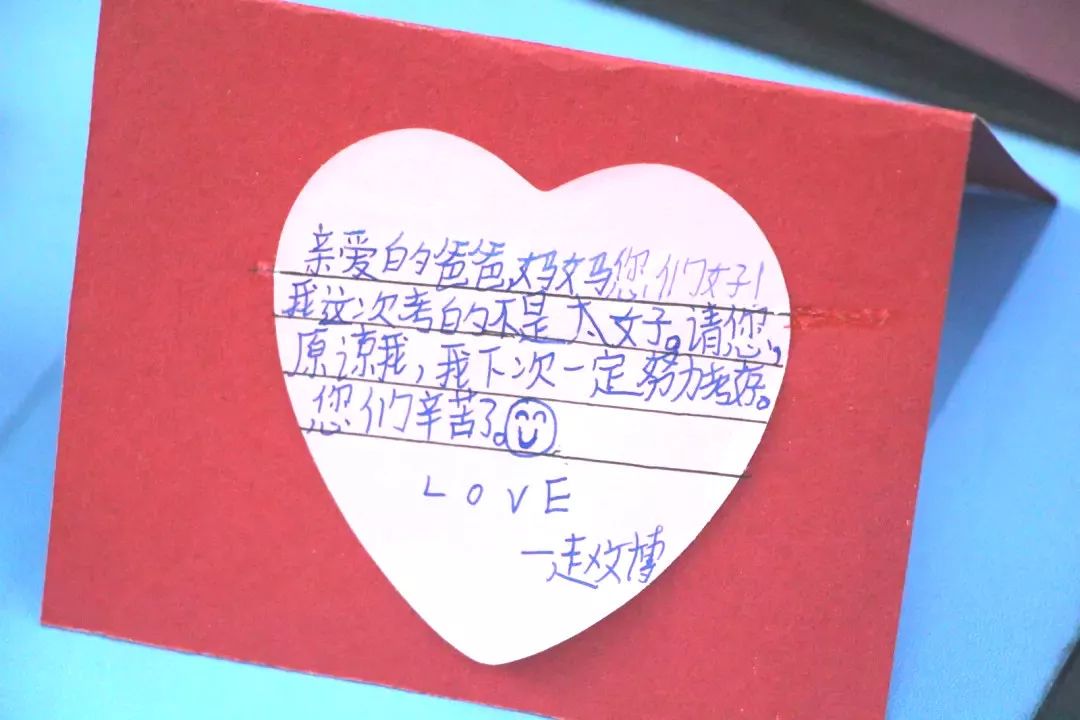 亲爱的爸爸,妈妈您们好!
我这次考的不是太好。请您,
原谅我,我下次一定努力考好。
您们辛苦了。
LOVE
一赵文博